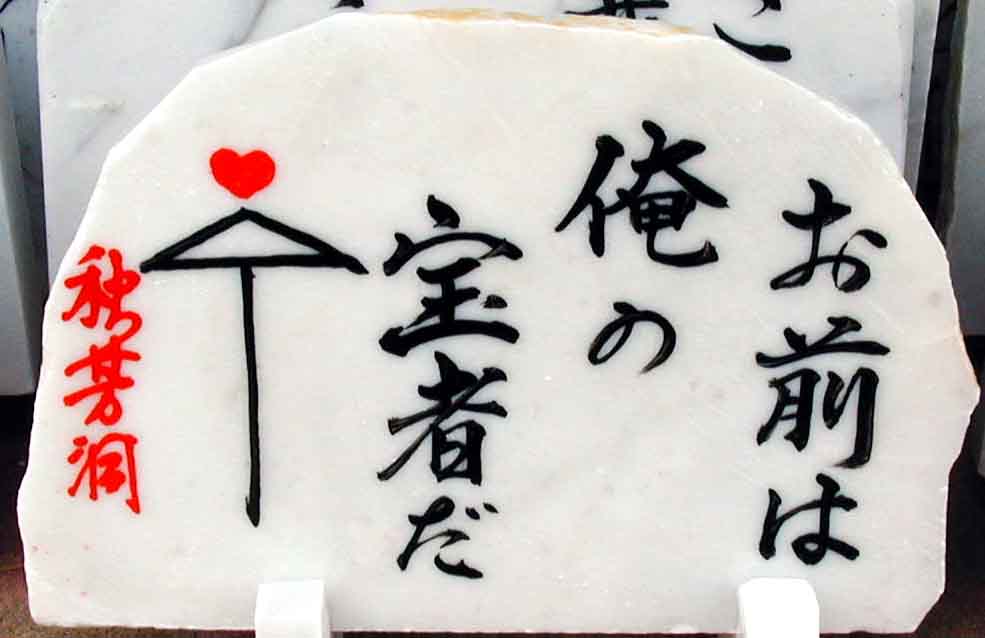 お前は
俺の
宝者だ
秋芳洞